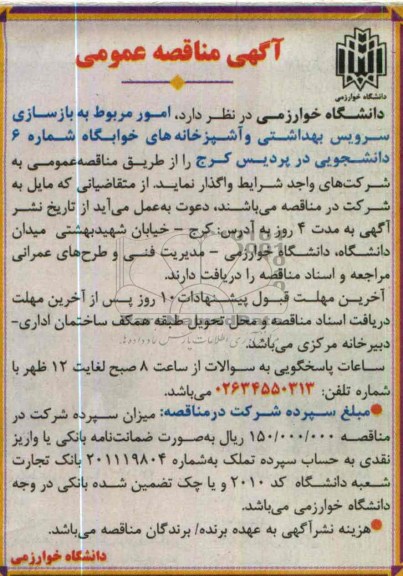 آگهی مناقصه عمومی
دانشگاه خوارزمی
دانشگاه خوارزمی در نظر دارد، امور مربوط به بازسازی
سرویس بهداشتی و آشپزخانه های خوابگاه شماره ۶
دانشجویی در پردیس کرج را از طریق مناقصه‌عمومی به
شرکت‌های واجد شرایط واگذار نماید. از متقاضیانی که مایل به
شرکت در مناقصه می‌باشند، دعوت به‌عمل می‌آید از تاریخ نشر
آگهی به مدت ۴ روز به آدرس: کرج - خیابان شهیدبهشتی میدان
دانشگاه، دانشگاه خوارزمی - مدیریت فنی و طرح‌های عمرانی
مراجعه و اسناد مناقصه را دریافت دارند.
آخرین مهلت قبول پیشنهادات ۱۰ روز پس از آخرین مهلت
دریافت اسناد مناقصه و محل تحویل طبقه همکف ساختمان اداری-
دبیرخانه مرکزی می‌باشد.
ساعات پاسخگویی به سوالات از ساعت ۸ صبح لغایت ۱۲ ظهر با
شماره تلفن: ۰۲۶۳۴۵۵۰۳۱۳ می‌باشد.
●مبلغ سپرده شرکت در مناقصه: میزان سپرده شرکت در
مناقصه ۱۵۰/۰۰۰/۰۰۰ ریال به‌صورت ضمانت‌نامه بانکی یا واریز
نقدی به حساب سپرده تملک به‌شماره ۲۰۱۱۱۹۸۰۴ بانک تجارت
شعبه دانشگاه کد ۲۰۱۰ و یا چک تضمین شده بانکی در وجه
دانشگاه خوارزمی می‌باشد.
●هزینه نشرآگهی به عهده برنده/ برندگان مناقصه می‌باشد.
دانشگاه خوارزمی